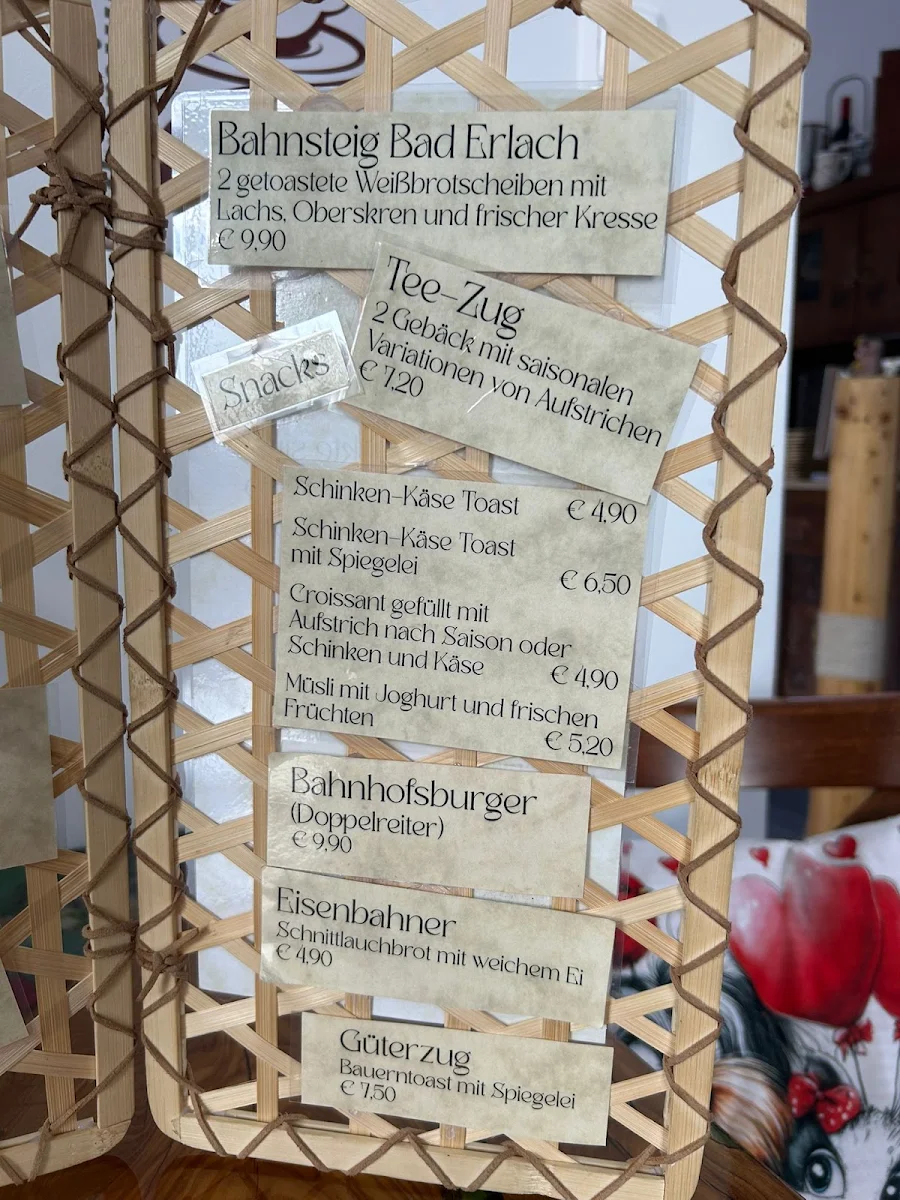 Bahnsteig Bad Erlach
2 getoastete Weißbrotscheiben mit
Lachs, Oberskren und frischer Kresse
€ 9,90
Tee-Zug
2 Gebäck mit saisonalen
Variationen von Aufstrichen
€ 7,20
Snacks
Schinken-Käse Toast € 4,90
Schinken-Käse Toast
mit Spiegelei
€ 6,50
Croissant gefüllt mit
Aufstrich nach Saison oder
Schinken und Käse € 4,90
Müsli mit Joghurt und frischen
Früchten
€ 5,20
Bahnhofsburger
(Doppelreiter)
€ 9,90
Eisenbahner
Schnittlauchbrot mit weichem Ei
€ 4,90
Güterzug
Bauerntoast mit Spiegelei
€ 7,50